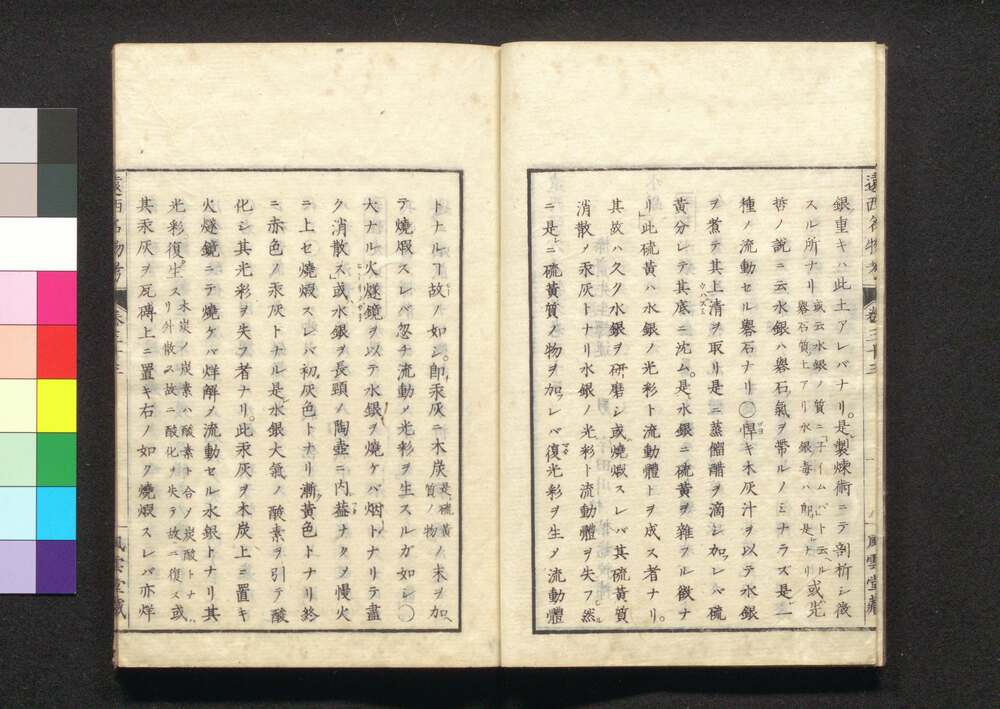 遠西名物考 卷三十三 風雲堂藏
銀重キハ此土アレバナリ。是製煉術ニテ剖析シ徴
スル所ナリ 或云水銀ノ質ニ「チイムバト云ヘル礜石質土アリ水銀毒ハ是ニ 或先
哲ノ說ニ云水銀ハ礜石氣ヲ帶ルノミナラズ是一
種ノ流動セル礜石ナリ〇悍キ木灰汁ヲ以テ水銀
ヲ煮テ其上清ヲ取リ是ニ蒸餾醋ヲ滴シ加フレバ硫
黄分レテ其底ニ沈ム。是水銀ニ硫黄ヲ雜フル徴ナ
リ」此硫黄ハ水銀ノ光彩ト流動體トヲ成ス者ナリ。
其故ハ久ク水銀ヲ研磨シ或燒煆スレバ其硫黄質
消散ノ汞灰トナリ水銀ノ光彩ト流動體ヲ失フ然
ニ是ニ硫黄質ノ物ヲ加フレバ復光彩ヲ生ノ流動體
トナルヿ故ノ如シ。卽汞灰ニ木炭 是硫黄ノ質ノ物 末ヲ加
テ燒煆スレバ忽チ流動ノ光彩ヲ生スルガ如シ〇
大ナル火燧鏡ヲ以テ水銀ヲ燒ケバ烟トナリテ盡
ク消散ス」或水銀ヲ長頸ノ陶壺ニ内葢ナクノ慢火
ニ上セ燒煆スレバ初灰色トナリ漸黄色トナリ終
ニ赤色ノ汞灰トナル是水銀大氣ノ酸素ヲ引テ酸
化シ其光彩ヲ失フ者ナリ。此汞灰ヲ木炭上ニ置キ
火燧鏡ニテ燒ケバ烊解ノ流動セル水銀トナリ其
光彩復生ス 木炭ノ炭素ハ酸素ト合ノ炭酸トナリ外散ス故ニ酸化ヲ失ヲ故ニ復ス 或
其汞灰ヲ瓦磚上ニ置キ右ノ如ク燒煆スレバ亦烊
遠西名物考 卷三十三 風雲堂藏